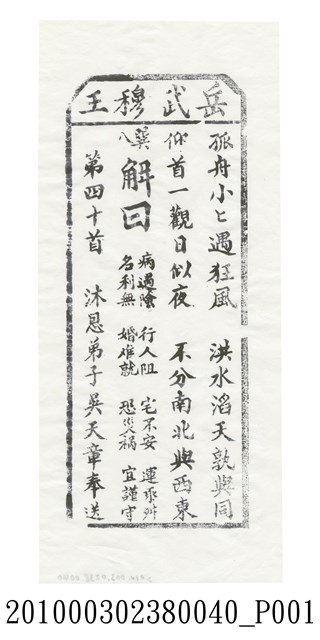 岳武穆王
孤舟小匕遇狂風　洪水滔天孰與同
仰首一觀日似夜　不分南北與西東
巽八
解曰
病遇陰　行人阻　宅不安　運乖舛
名利無　婚难就　恐災禍　宜謹守
第四十首　沐恩弟子吳天章奉送
201000302380040_P001